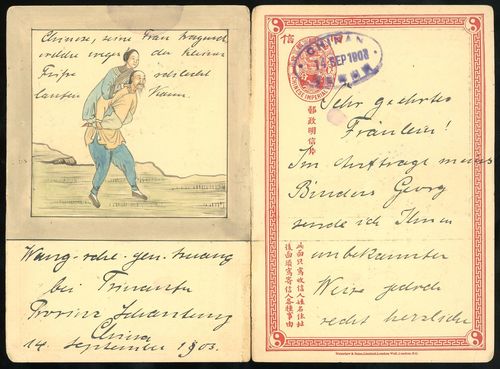 Chinese, seine Frau tragend
welche wegen der kleinen
Füsse schlecht
laufen kann.
bei Tsinanfu
Provinz Schantung
China
14. September 1903.
信
14 SEP 1903
CHINESE IMPERIAL
郵政明信片
Sehr geehrtes
Fräulein!
Im Auftrage meines
Bruders Georg
sende ich Ihnen
unbekannter
Weise jedoch
recht herzliche
此面只寫收信人姓名住址
後面寫寄信人各種事由
Waterlow & Sons, Limited, London Wall, London, E.C.